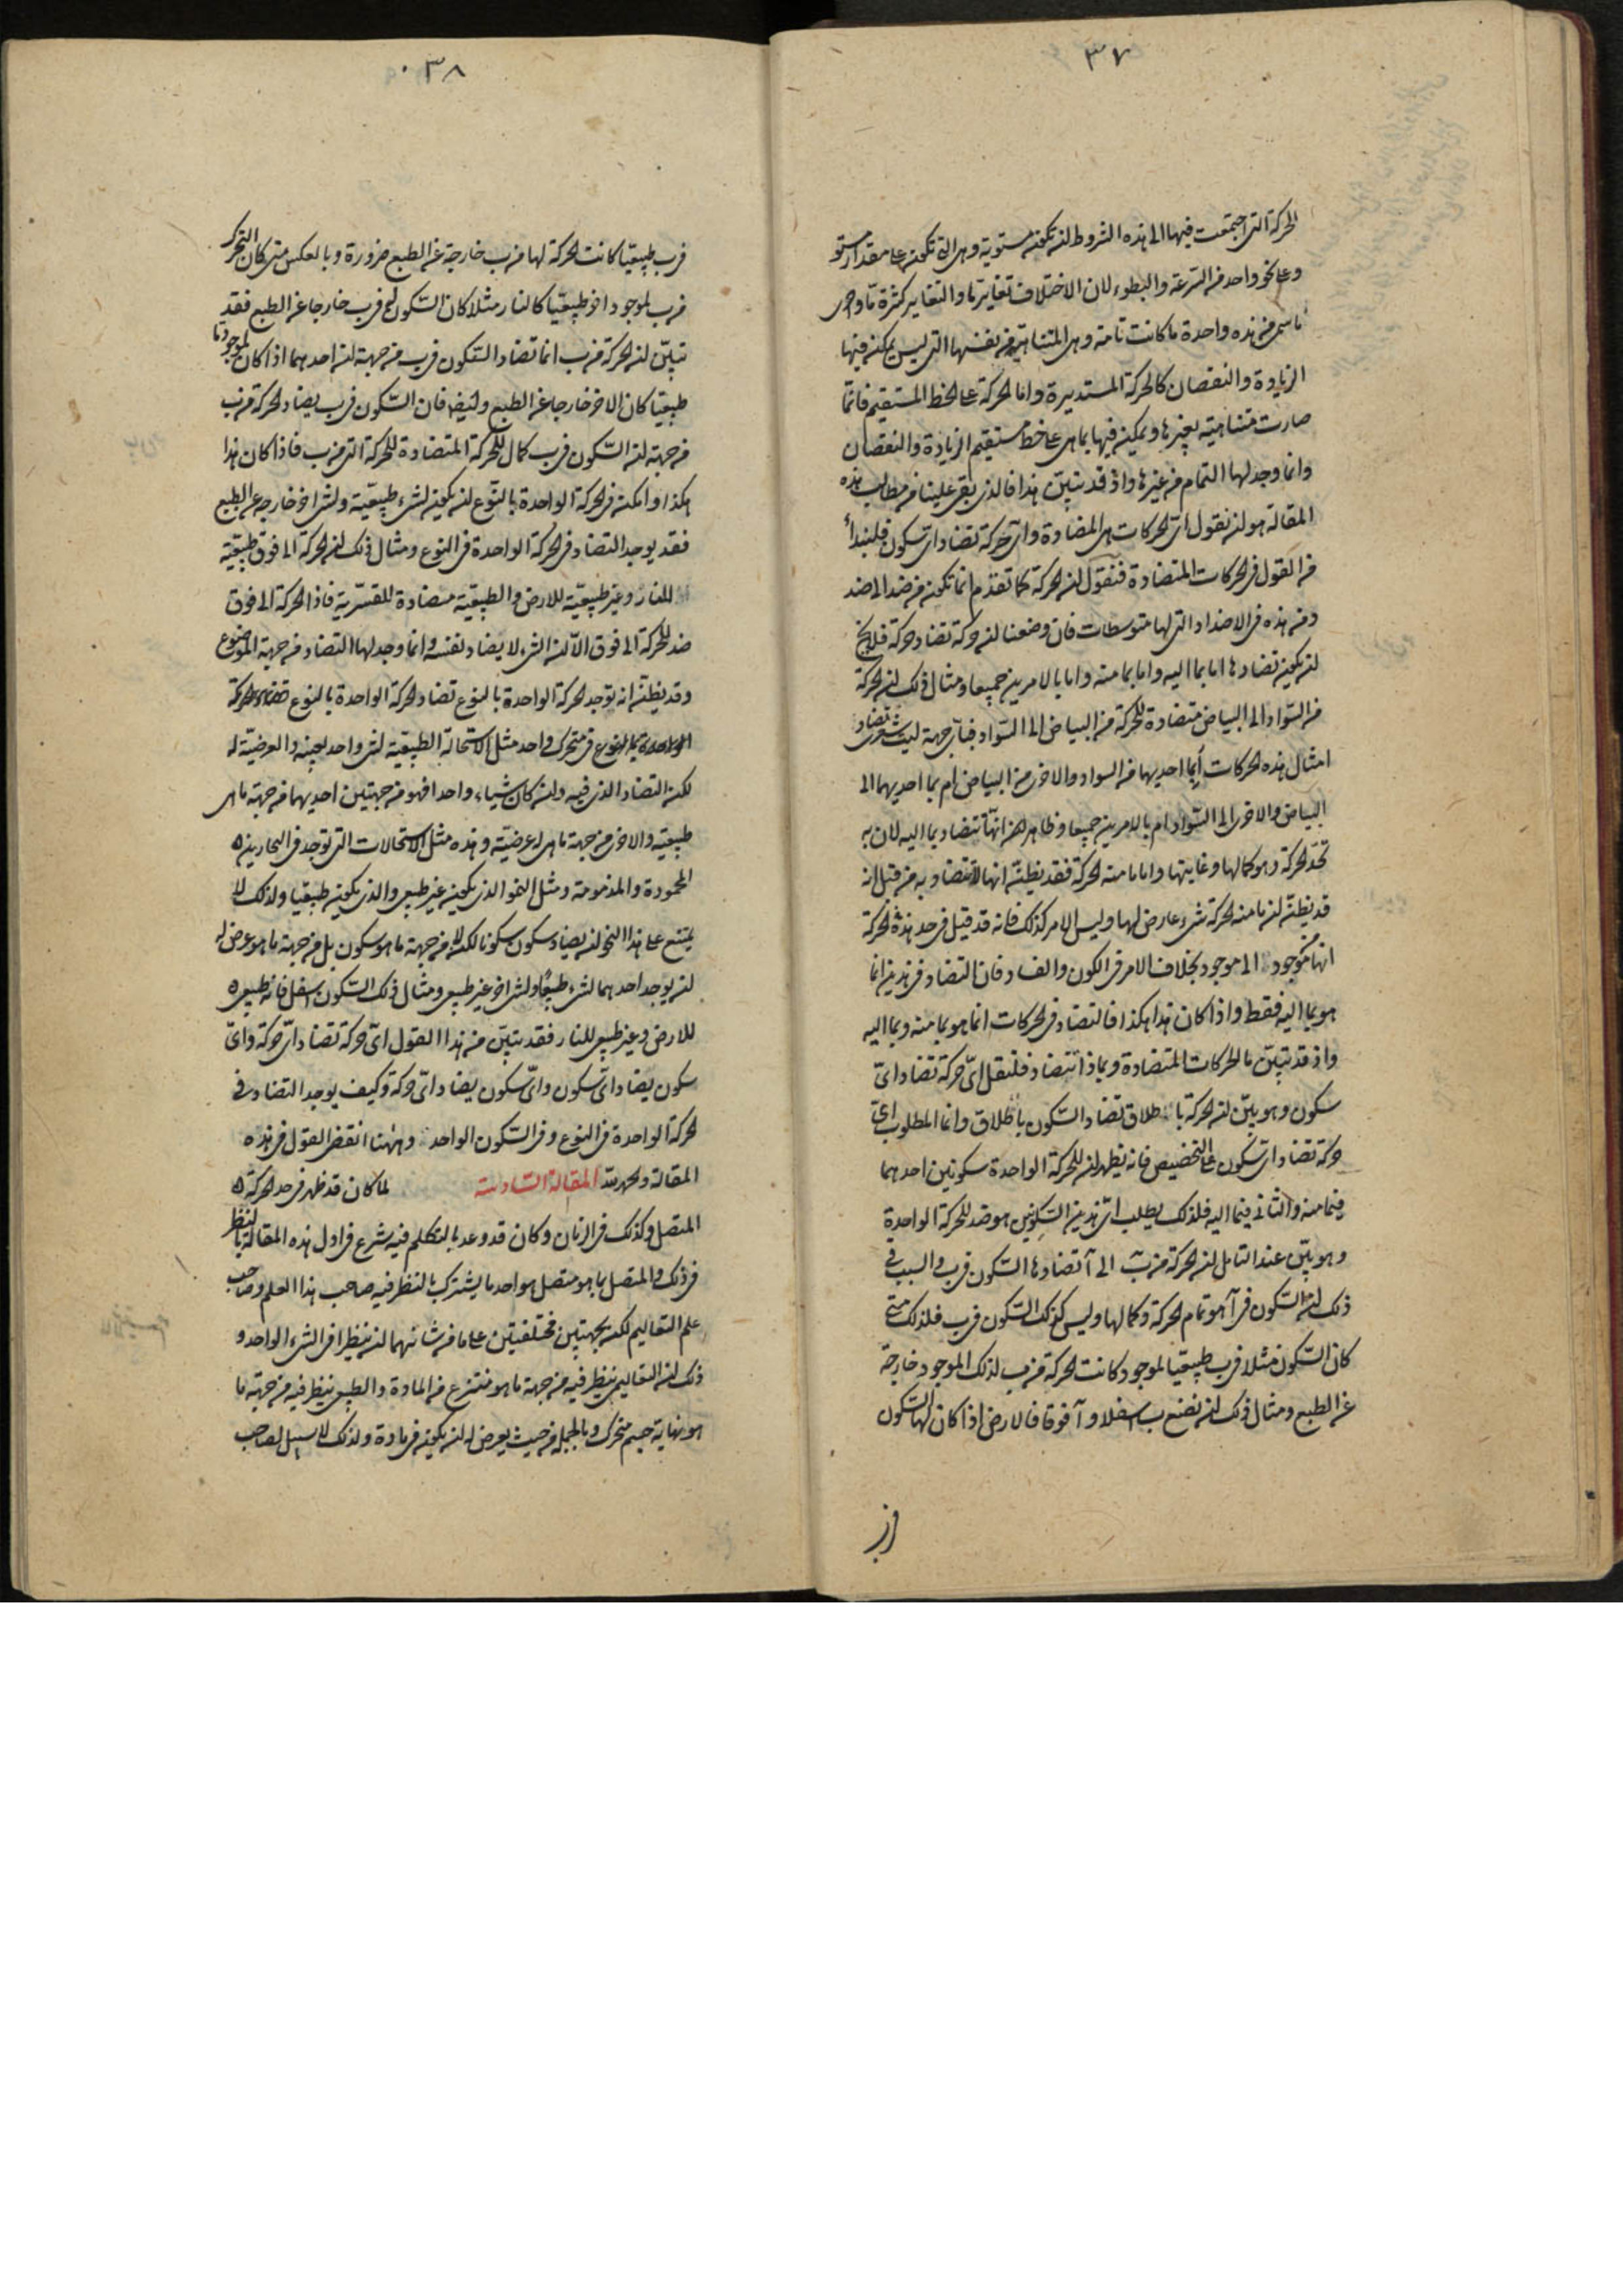 ٣٧
الحركة التى اجتمعت فيها الى هذه الشروط ان تكون مستوية وهى التى تكون على مقدار مستو
وعلى نحو واحد من السرعة والبطوء لان الاختلاف تغاير ما والتغاير كثرة ما واحرى
ما سمى من هذه واحدة ما كانت تامة وهى المتناهية من نفسها التى ليس يمكن فيها
الزيادة والنقصان كالحركة المستديرة واما الحركة على الخط المستقيم فانما
صارت متناهية بغيرها ويمكن فيها بما هى على خط مستقيم الزيادة والنقصان
وانما وجد لها التمام من غيرها واذ قد تبين هذا فالذى بقى علينا من مطالب هذه
المقالة هو ان نقول اى الحركات هى المضادة واى حركة تضاد اى سكون فلنبدأ
من القول فى الحركات المتضادة فنقول ان الحركة كما تقدم انما تكون من ضد الى ضد
ومن هذه فى الاضداد التى لها متوسطات فان وضعنا ان حركة تضاد حركة فلا يخ
ان يكون تضادها اما بما اليه واما بما منه واما بالامرين جميعا ومثال ذلك ان الحركة
من السواد الى البياض متضادة للحركة من البياض الى السواد فبأى جهة ليت شعرى تضاد
امثال هذه الحركات أبما احديهما من السواد والاخرى من البياض ام بما احديهما الى
البياض والاخرى الى السواد ام بالامرين جميعا وظاهر انها تتضاد بما اليه لان به
تحد الحركة وهو كمالها وغايتها واما ما منه الحركة فقد يظن انها لا تتضاد به من قبل انه
قد يظن ان ما منه الحركة شىء عارض لها وليس الامر كذلك فانه قد قيل فى حد هذه الحركة
انها من موجود الى موجود بخلاف الامر فى الكون والفساد فان التضاد فى هذين انما
هو بما اليه فقط واذا كان هذا هكذا فالتضاد فى الحركات انما هو بما منه وبما اليه
واذ قد تبين ما الحركات المتضادة وبماذا تتضاد فلنقل اى حركة تضاد اى
سكون وهو بين ان الحركة باطلاق تضاد السكون باطلاق وانما المطلوب اى
حركة تضاد اى سكون على التخصيص فانه يظهر ان للحركة الواحدة سكونين احدهما
فيما منه والثانى فيما اليه فلذلك يطلب اى هذين السكونين هو ضد للحركة الواحدة
وهو بين عند التامل ان الحركة من ب الى آ تضادها السكون فى ب والسبب فى
ذلك ان السكون فى آ هو تمام الحركة وكمالها وليس كذلك السكون فى ب فلذلك متى
كان السكون مثلا فى ب طبيعيا لموجود كانت الحركة من ب لذلك الموجود خارجة
عن الطبع ومثال ذلك ان نضع ب اسفل و آ فوق فالارض اذا كان لها السكون

٣٨
فى ب طبيعيا كانت الحركة لها من ب خارجة عن الطبع ضرورة وبالعكس متى كان التحرك
من ب لموجود اخر طبيعيا كالنار مثلا كان السكون له فى ب خارجا عن الطبع فقد
تبين ان الحركة من ب انما تضاد السكون فى ب من جهة ان احدهما اذا كان لموجود ما
طبيعيا كان الاخر خارجا عن الطبع وايضا فان السكون فى ب يضاد الحركة من ب
من جهة ان السكون فى ب كمال للحركة المتضادة للحركة التى من ب فاذا كان هذا
هكذا وامكن فى الحركة الواحدة بالنوع ان يكون لشىء طبيعية ولشىء اخر خارجة عن الطبع
فقد يوجد التضاد فى الحركة الواحدة فى النوع ومثال ذلك ان الحركة الى فوق طبيعية
للنار وغير طبيعية للارض والطبيعية متضادة للقسرية فاذا الحركة الى فوق
ضد للحركة الى فوق الا ان الشىء لا يضاد نفسه وانما وجد لها التضاد من جهة الموضوع
وقد يظن انه توجد الحركة الواحدة بالنوع تضاد الحركة الواحدة بالنوع
الواحدة بالنوع فى متحرك واحد مثل الاستحالة الطبيعية لشىء واحد بعينه والعرضية له
لكن التضاد الذى فيه وان كان شياء واحدا فهو من جهتين احديهما من جهة ما هى
طبيعية والاخرى من جهة ما هى له عرضية وهذه مثل الاستحالات التى توجد فى البحارين
المحمودة والمذمومة ومثل النمو الذى يكون غير طبيعى والذى يكون طبيعيا ولذلك لا
يمتنع على هذا النحو ان يضاد سكون سكونا لكن لا من جهة ما هو سكون بل من جهة ما هو عرض له
ان يوجد احدهما لشىء طبيعيا ولشىء اخر غير طبيعى ومثال ذلك السكون اسفل فانه طبيعى
للارض وغير طبيعى للنار فقد تبين من هذا القول اى حركة تضاد اى حركة واى
سكون يضاد اى سكون واى سكون يضاد اى حركة وكيف يوجد التضاد فى
الحركة الواحدة فى النوع وفى السكون الواحد وههنا انقضى القول فى هذه
المقالة والحمد لله المقالة السادسة لما كان قد ظهر فى حد الحركة
المتصل وكذلك فى الزمان وكان قد وعد بالتكلم فيه شرع فى اول هذه المقالة بالنظر
فى ذلك والمتصل بما هو متصل هو احد ما يشترك بالنظر فيه صاحب هذا العلم وصاحب
علم التعاليم لكن بجهتين مختلفتين على ما من شانهما ان ينظرا فى الشىء الواحد و
ذلك ان التعاليمى ينظر فيه من جهة ما هو منتزع من المادة والطبيعى ينظر فيه من جهة ما
هو نهاية جسم متحرك وبالجملة من حيث يعرض له ان يكون فى مادة ولذلك لا سبيل لصاحب